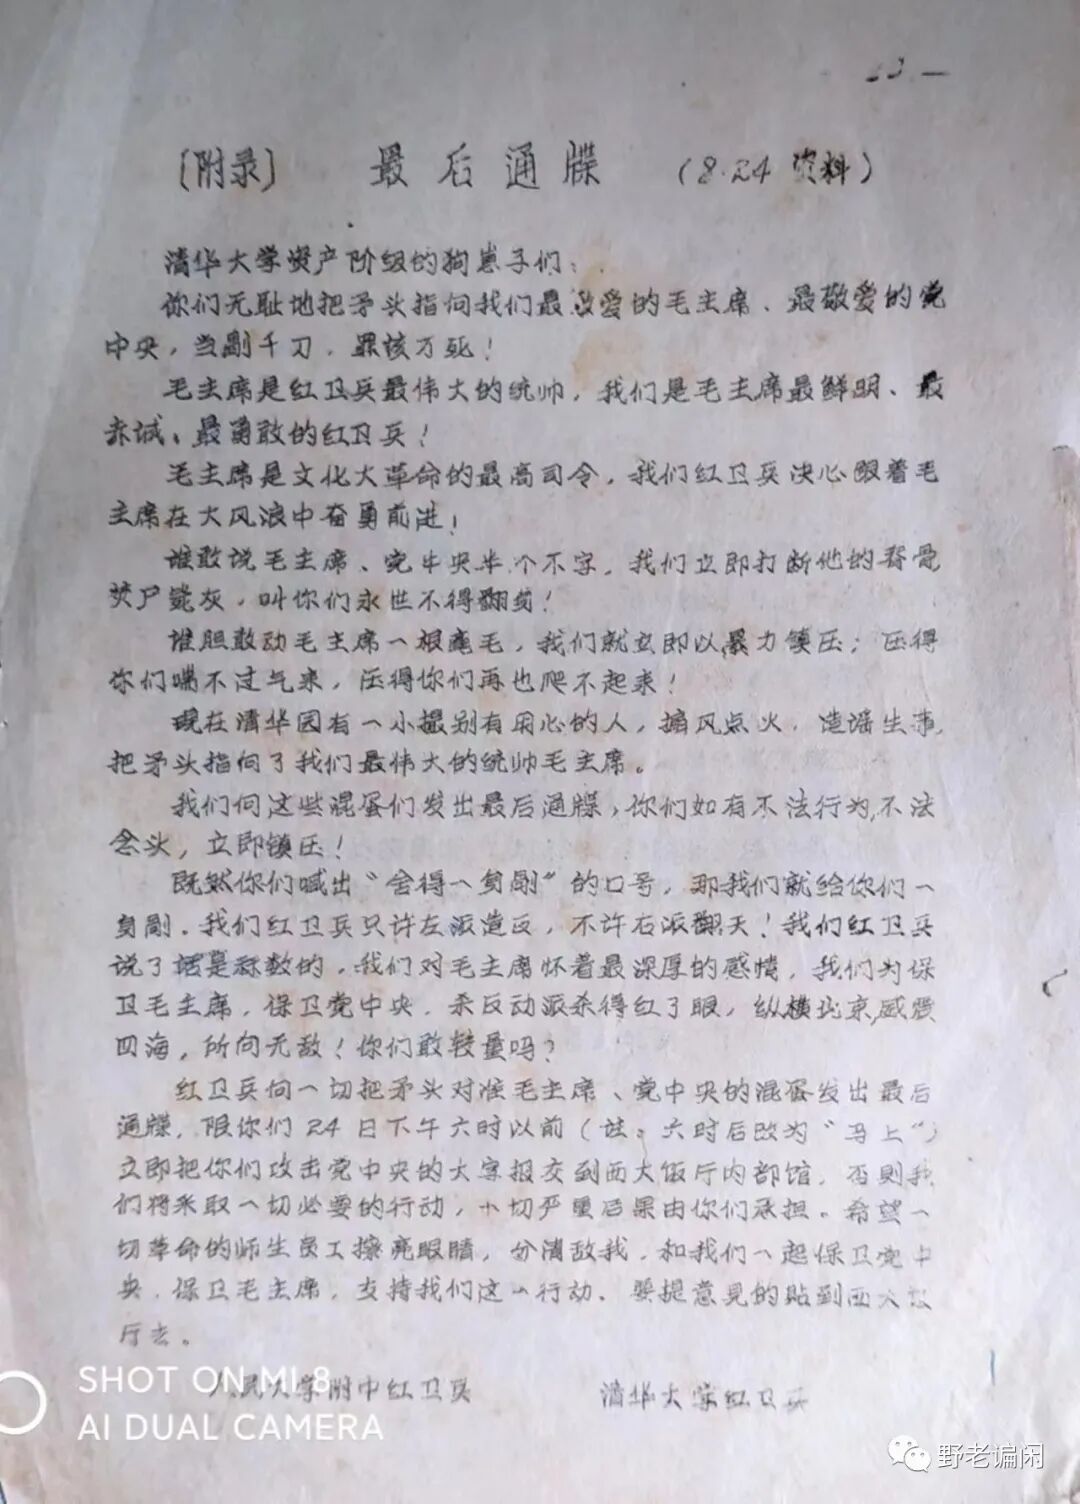 〔附录〕 最后通牒 (8.24资料)
清华大学资产阶级的狗崽子们：
你们无耻地把矛头指向我们最敬爱的毛主席、最敬爱的党
中央，当剐千刀，罪该万死！
毛主席是红卫兵最伟大的统帅，我们是毛主席最鲜明、最
赤诚、最勇敢的红卫兵！
毛主席是文化大革命的最高司令，我们红卫兵决心跟着毛
主席在大风浪中奋勇前进！
谁敢说毛主席、党中央半个不字，我们立即打断他的脊骨
焚尸毙灰，叫你们永世不得翻身！
谁胆敢动毛主席一根毫毛，我们就立即以暴力镇压；压得
你们喘不过气来，压得你们再也爬不起来！
现在清华园有一小撮别有用心的人，搧风点火，造谣生事，
把矛头指向了我们最伟大的统帅毛主席。
我们向这些混蛋们发出最后通牒，你们如有不法行为，不法
念头，立即镇压！
既然你们喊出“舍得一身剐”的口号，那我们就给你们一
身剐．我们红卫兵只许左派造反，不许右派翻天！我们红卫兵
说了话是称数的．我们对毛主席怀着最深厚的感情，我们为保
卫毛主席，保卫党中央．杀反动派杀得红了眼，纵横北京，威震
四海，所向无敌！你们敢较量吗？
红卫兵向一切把矛头对准毛主席、党中央的混蛋发出最后
通牒，限你们24日下午六时以前（注。六时后改为“马上”）
立即把你们攻击党中央的大字报交到西大饭厅内部馆，否则我
们将采取一切必要的行动，一切严重后果由你们承担。希望一
切革命的师生员工擦亮眼睛，分清敌我，和我们一起保卫党中
央．保卫毛主席，支持我们这一行动．要提意见的贴到西大饭
厅去。
人民大学附中红卫兵 清华大学红卫兵
SHOT ON MI 8
AI DUAL CAMERA
野老谝闲